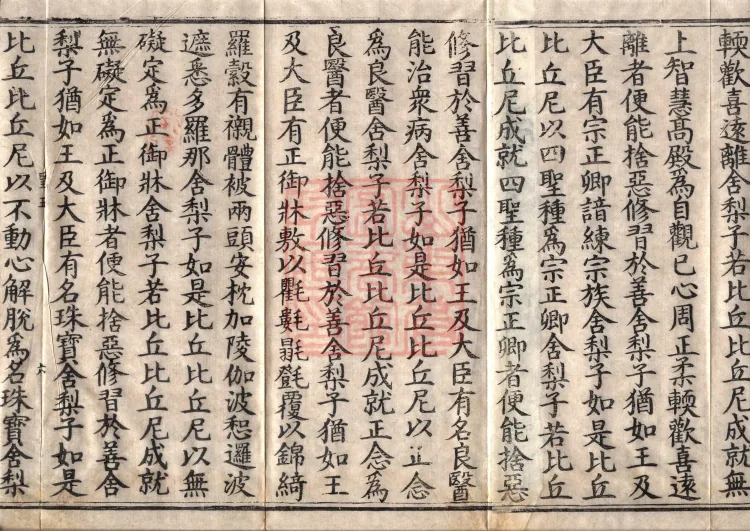 輭歡喜遠離舍梨子若比丘比丘尼成就無
上智慧髙殿為自觀已心周正柔輭歡喜遠
離者便能捨惡修習於善舍梨子猶如王及
大臣有宗正卿諳練宗族舍梨子如是比丘
比丘尼以四聖種為宗正卿舍梨子若比丘
比丘尼成就四聖種為宗正卿者便能捨惡
修習於善舍梨子猶如王及大臣有名良醫
能治衆病舍梨子如是比丘比丘尼以正念
為良醫舍梨子若比丘比丘尼成就正念為
良醫者便能捨惡修習於善舍梨子猶如王
及大臣有正御牀敷以氍氀毾㲪覆以錦綺
羅縠有襯體被兩頭安枕加陵伽波惒邏波
遮悉多羅那舍梨子如是比丘比丘尼以無
礙定為正御牀舍梨子若比丘比丘尼成就
無礙定為正御牀者便能捨惡修習於善舍
梨子猶如王及大臣有名珠寶舍梨子如是
六
比丘比丘尼以不動心解脫為名珠寶舍梨